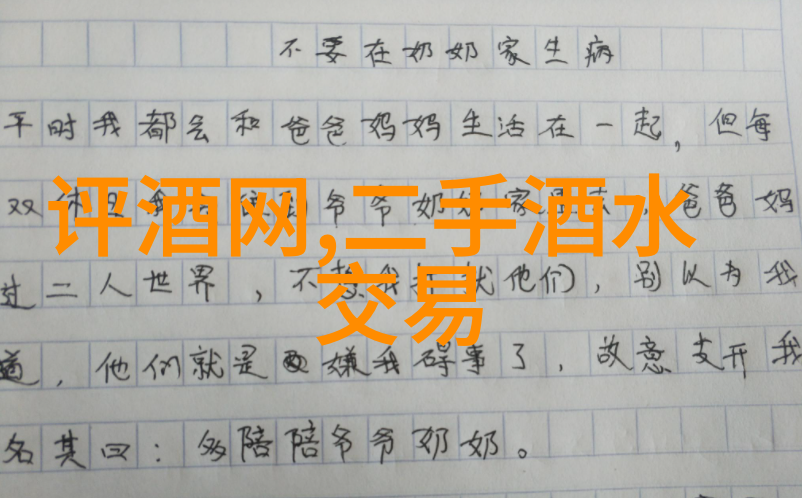 不要在奶奶家生病
平时我都会和爸爸妈妈生活在一起,但每
双休日我会 到爷爷奶奶家 ,爸爸妈
评酒网,二手酒水
过二人世界,不想我打扰他们,别以为我
交易
道,他们就是嫌我碍事了,故意支开我
名其曰:多陪陪爷爷奶奶。